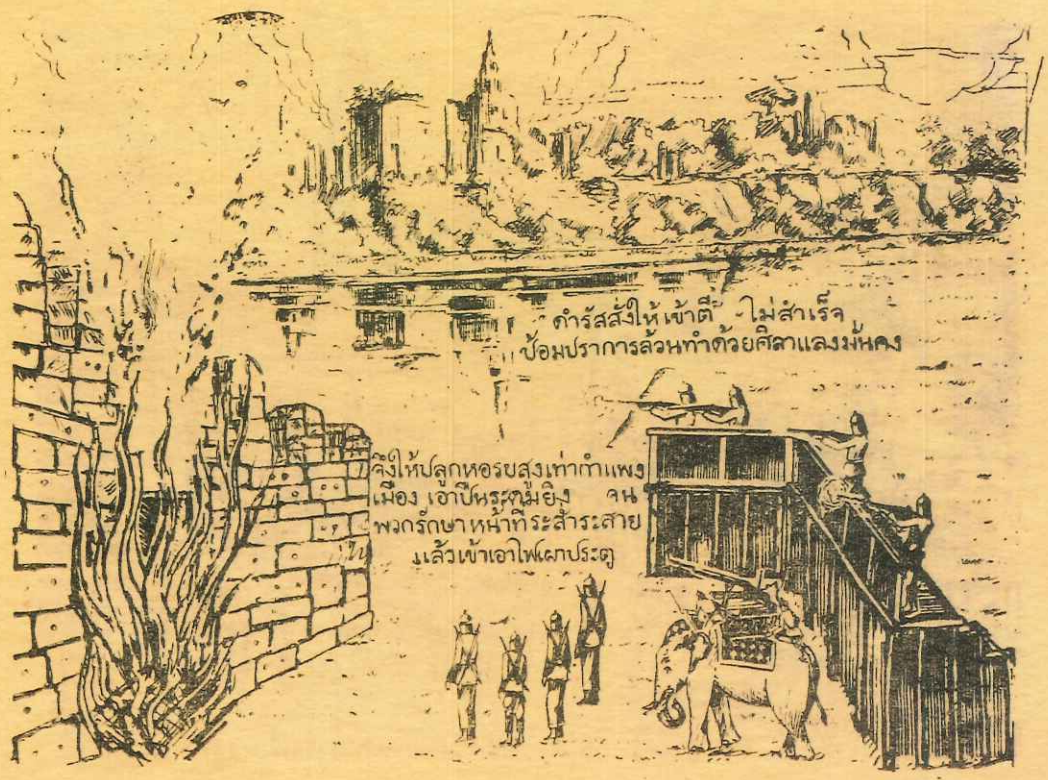 ดำรัสสั่งให้เข้าตี - ไม่สำเร็จ
ป้อมปราการล้วนทำด้วยศิลาแลงมั่นคง
จึงให้ปลูกหอรบสูงเท่ากำแพง
เมือง เอาปืนระดมยิง จน
พวกรักษาหน้าที่ระส่ำระสาย
แล้วเข้าเอาไฟเผาประตู